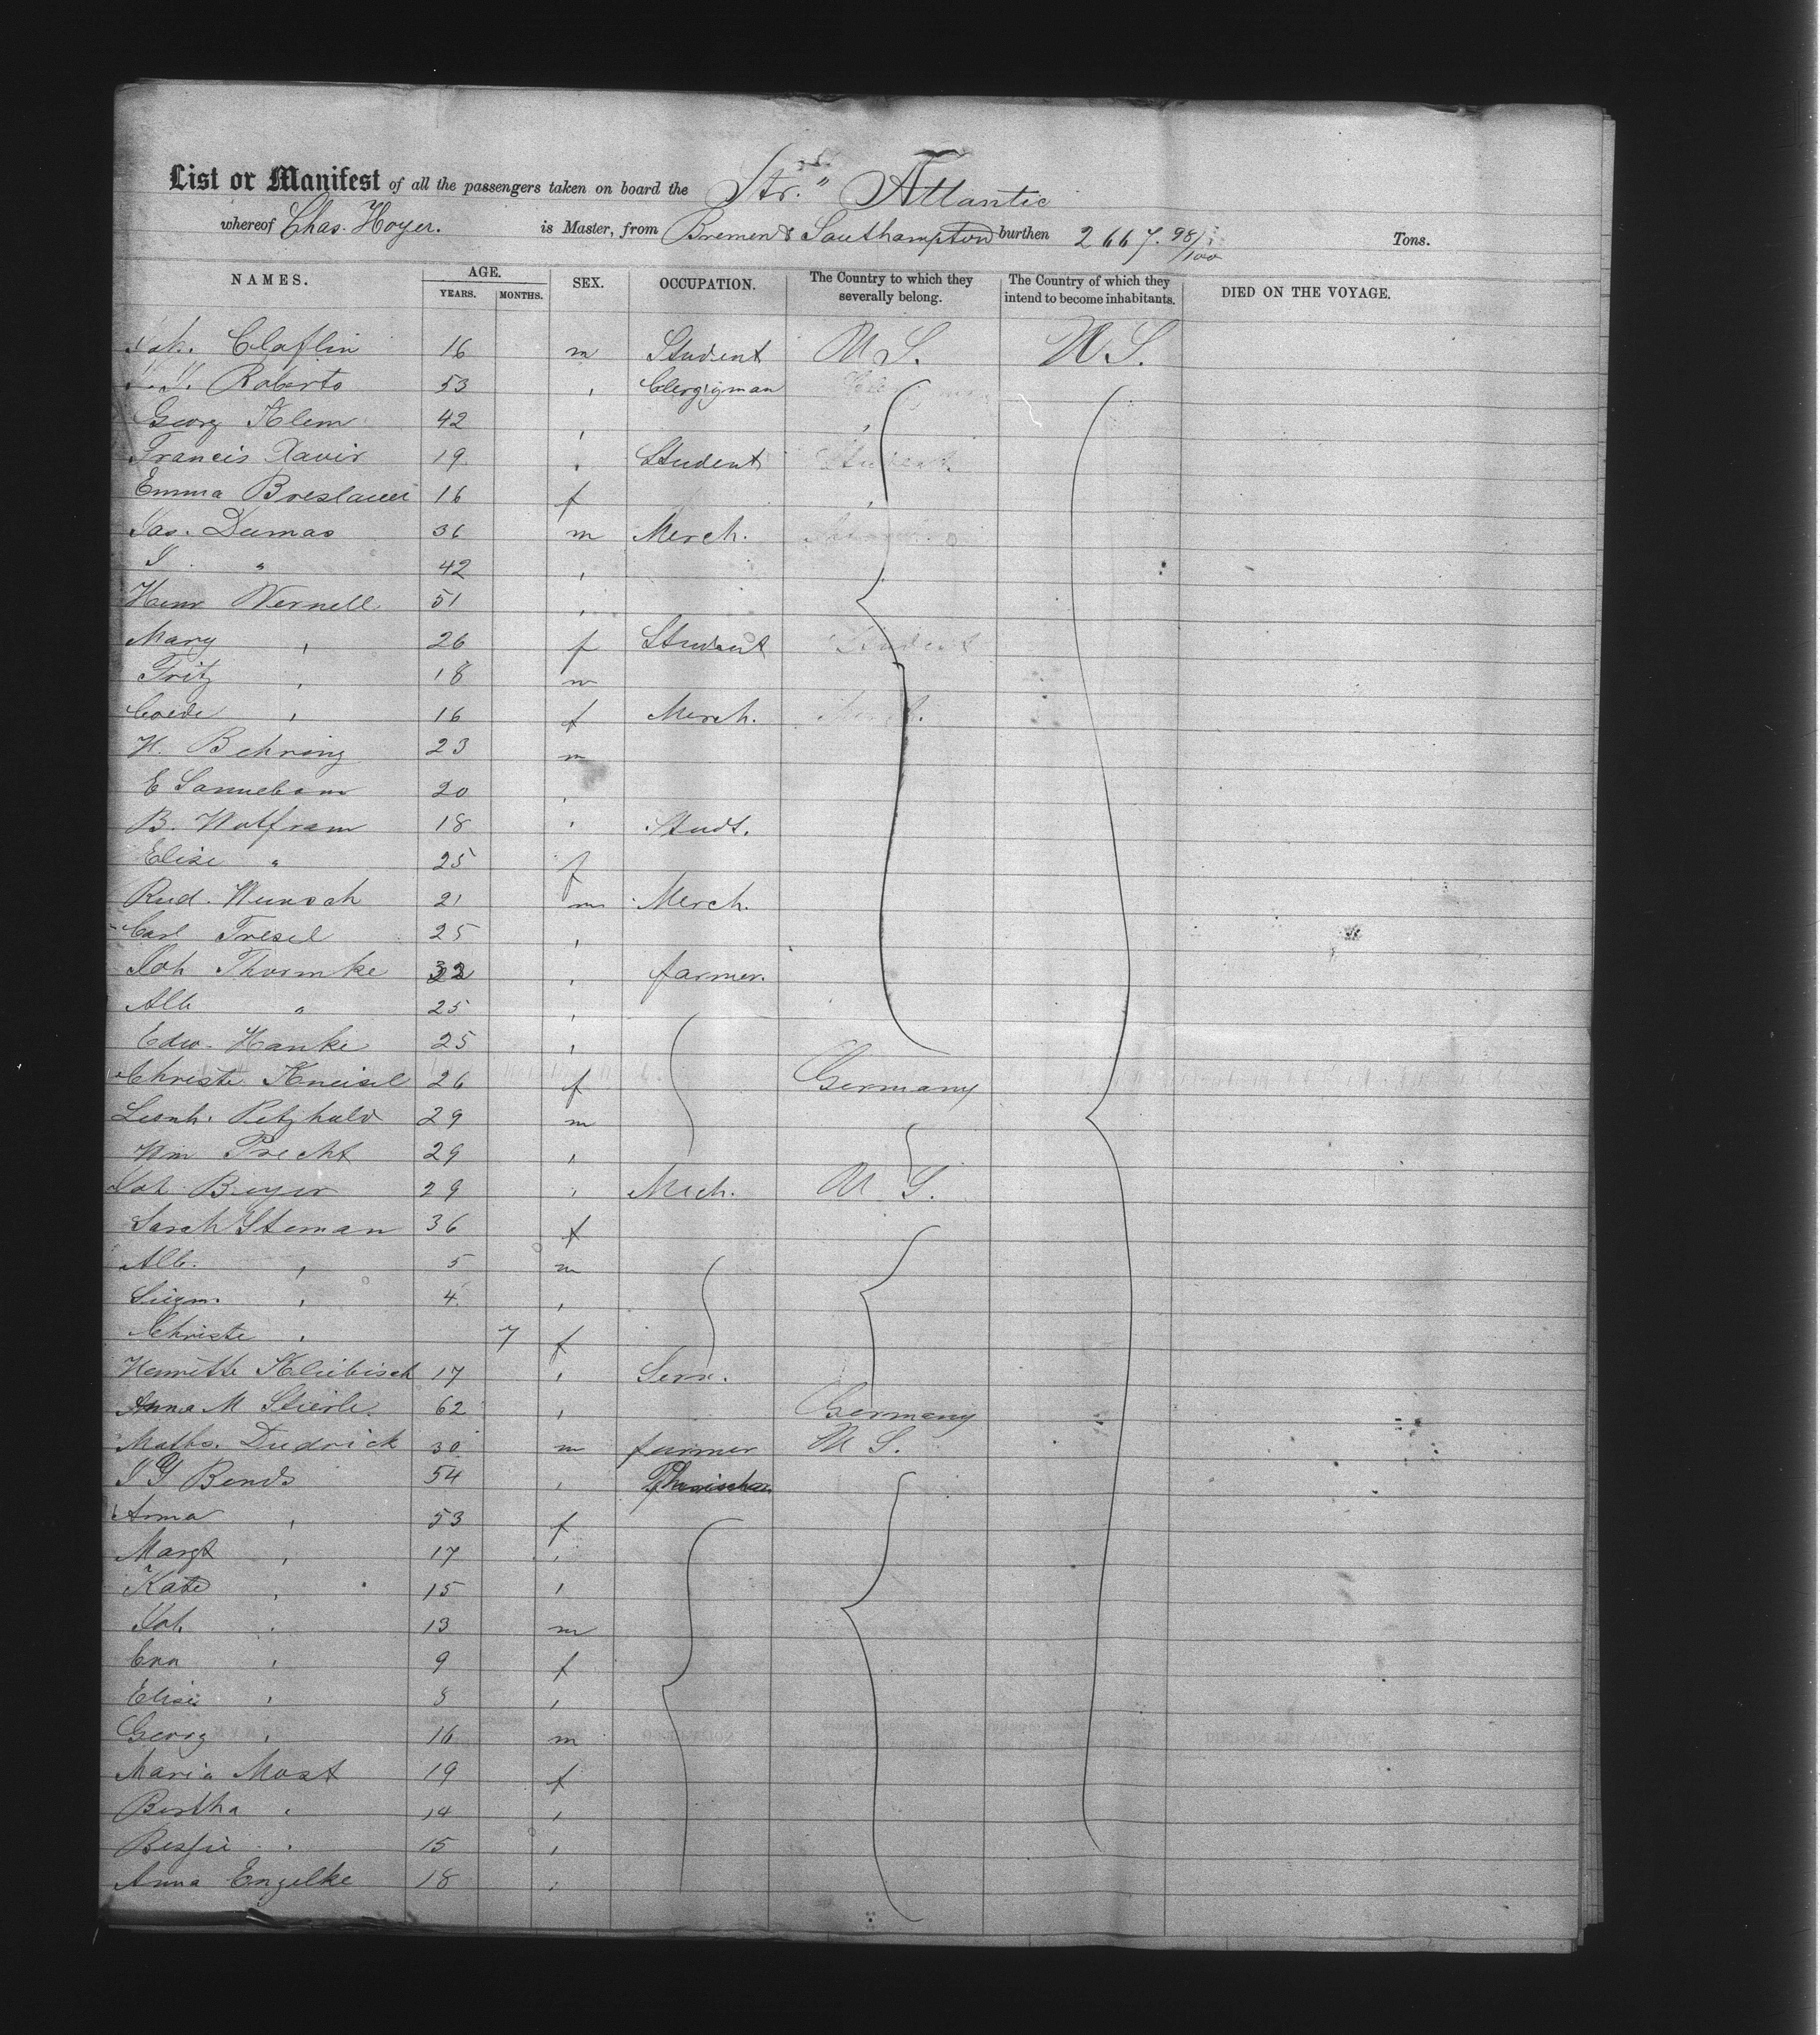 List or Manifest of all the passengers taken on board the Str. " Atlantic
whereof Chas. Hoyer. is Master, from Bremen & Southampton burthen 2667. 98/100 Tons.
NAMES. AGE. YEARS. MONTHS. SEX. OCCUPATION. The Country to which they severally belong. The Country of which they intend to become inhabitants. DIED ON THE VOYAGE.
Joh. Claflin 16 m Student U S. U S.
Roberts 53 , Clergyman
Georg Klem 42 , ,
Francis Xavir 19 , Student
Emma Breslauer 16 f ,
Jas. Dumas 36 m Merch.
J " 42 ,
Henr Wernell 51 ,
Mary , 26 f Student
Fritz , 18 m
, 16 f Merch.
H. Behring 23 m
E 20 ,
B. Wolfram 18 , Studt.
Elise " 25 f
Rud. Wunsch 21 m Merch.
Carl Tresel 25 ,
Joh Thormke 32 , farmer.
Alb " 25 ,
Edw. Hanke 25 ,
Christe Kneisel 26 f Germany
Leonh. Petzhold 29 m
Wm Precht 29 ,
Joh Beyer 29 , Mech. U S.
Sarah Steman 36 f
Alb. , 5 m
Siegm. , 4 ,
Christe , 7 f
Henriette Kleibisch 17 , Serv.
Anna M Stierle 62 , Germany
Maths. Dudrick 30 m farmer U S.
J G Bends 54 ,
Anna , 53 f
Margt , 17 ,
Kate , 15 ,
Joh. , 13 m
Eva , 9 f
Elise , 8 ,
Georg , 16 m
Maria Most 19 f
Bertha , 14 ,
Bessie , 15 ,
Anna Engelke 18 ,